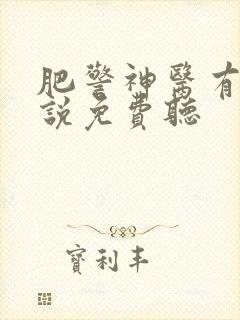 肥警神醫有
說免費聽
寶利丰